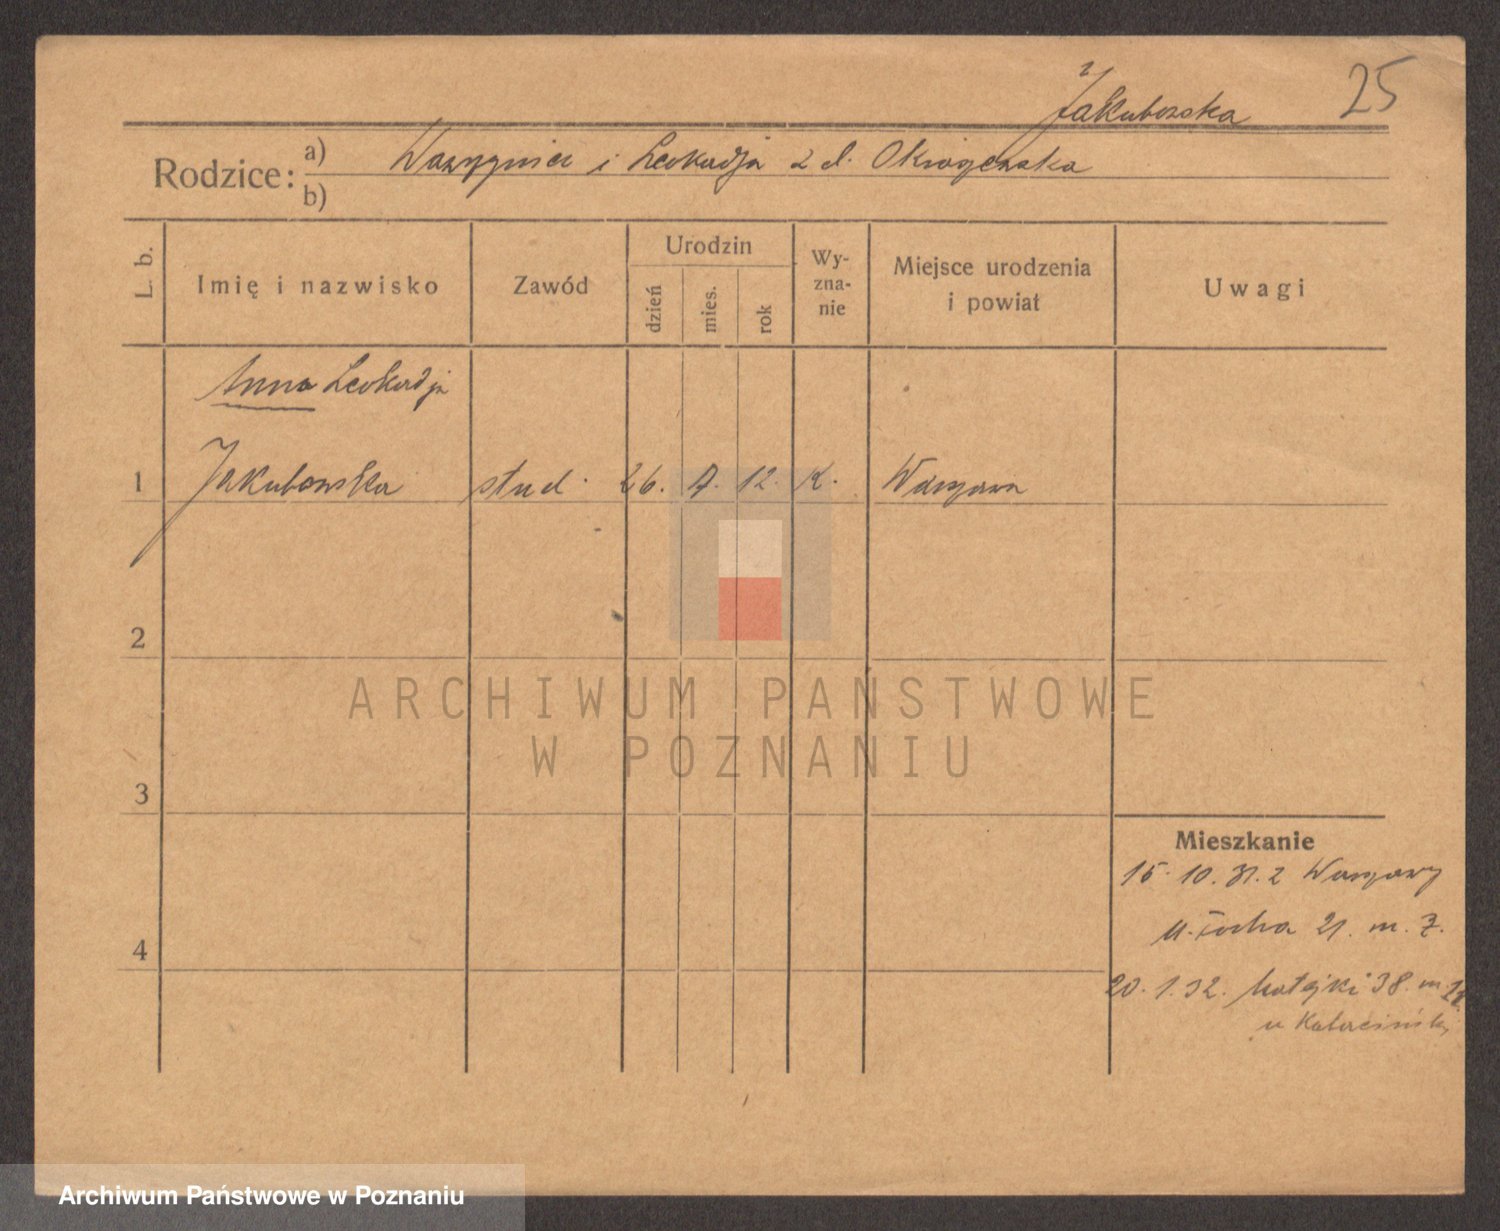 25
Jakubowska
Rodzice: a) Wawrzyniec i Leokadja z d.
b)
L. b.
Imię i nazwisko
Zawód
Urodzin
dzień
mies.
rok
Wy-
zna-
nie
Miejsce urodzenia
i powiat
Uwagi
Anna Leokadja
1 Jakubowska stud. 26. 7. 12. K. Warszawa
2
3
4
Mieszkanie
15. 10. 31. z Warszawy
21. m. 7.
20. 1. 32. Matejki 38. m
u
ARCHIWUM PAŃSTWOWE
W POZNANIU
Archiwum Państwowe w Poznaniu